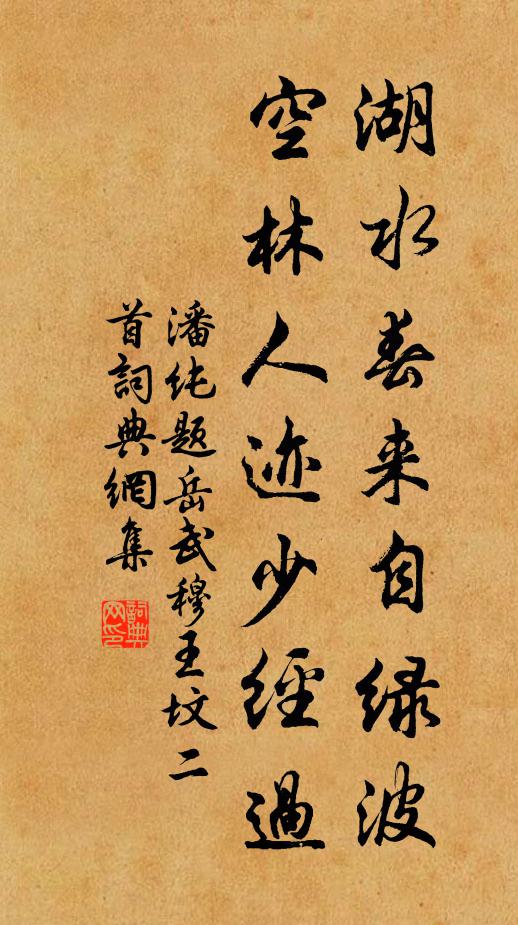 湖水春来自绿波
空林人迹少經過
潘纯题岳武穆王坟二
首詞典網集
詞典网印